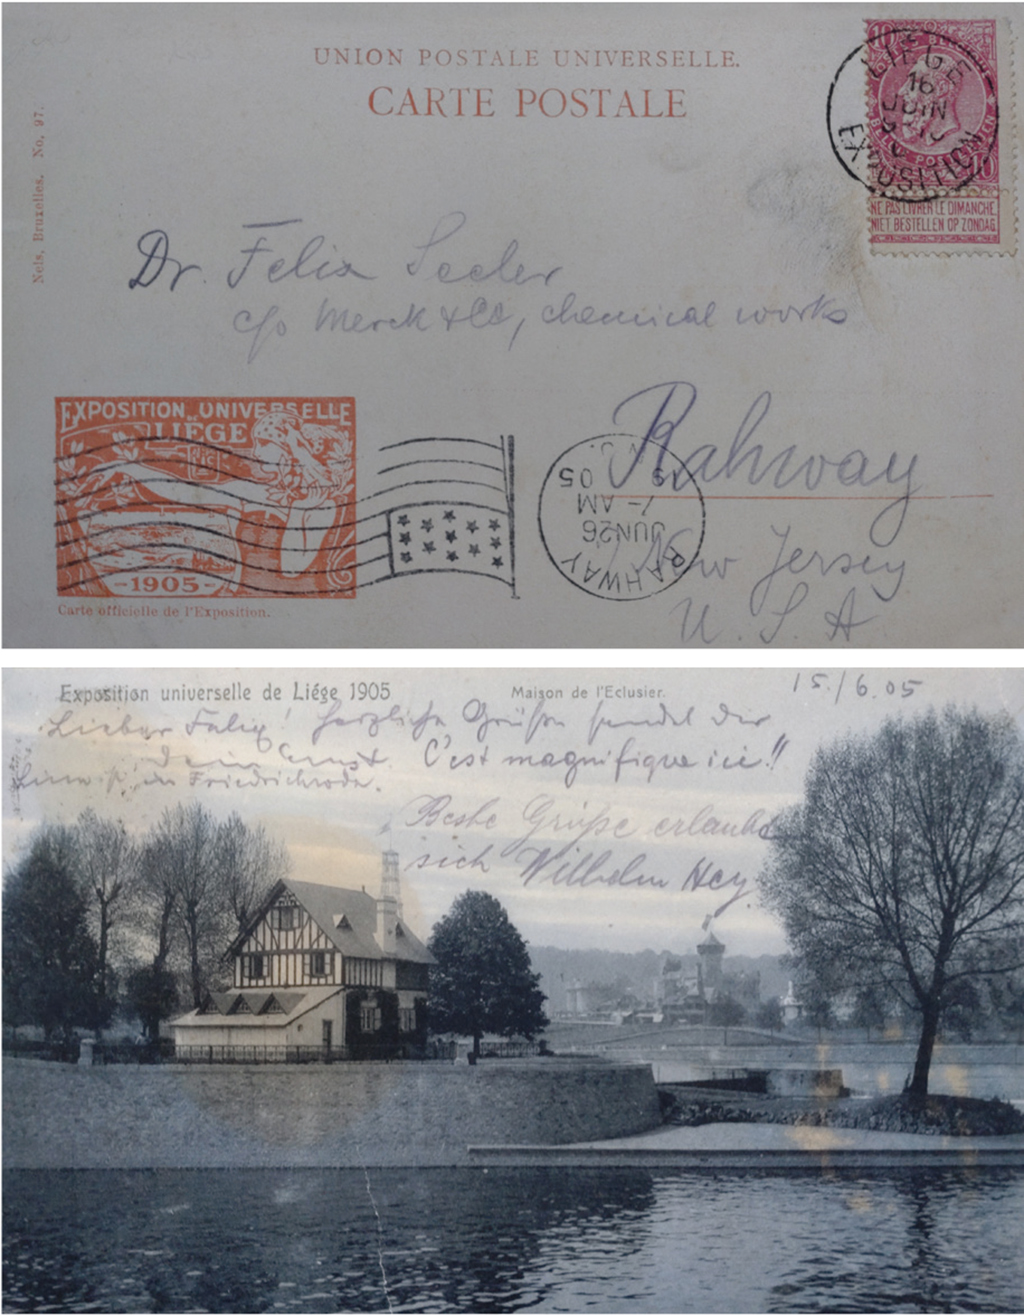 UNION POSTALE UNIVERSELLE.
CARTE POSTALE
Nels, Bruxelles. No. 97.
10
10
BELGIE POSTERIJEN
NE PAS LIVRER LE DIMANCHE
NIET BESTELLEN OP ZONDAG
LIÈGE
16
JUIN
EXPOSITION
Dr. Felix Seeler
c/o Merck & Co, chemical works
Rahway
New Jersey
U. S. A
EXPOSITION UNIVERSELLE
DE
LIÈGE
1905
Carte officielle de l'Exposition.
RAHWAY
JUN 26
7-AM
05
N.J.
Exposition universelle de Liége 1905
Maison de l'Eclusier.
15./6.05
Lieber Felix! herzliche Grüße sendet dir
dein Ernst. C'est magnifique ici!!
in Friedrichroda.
Beste Grüße erlaubt
sich Wilhelm Hey.